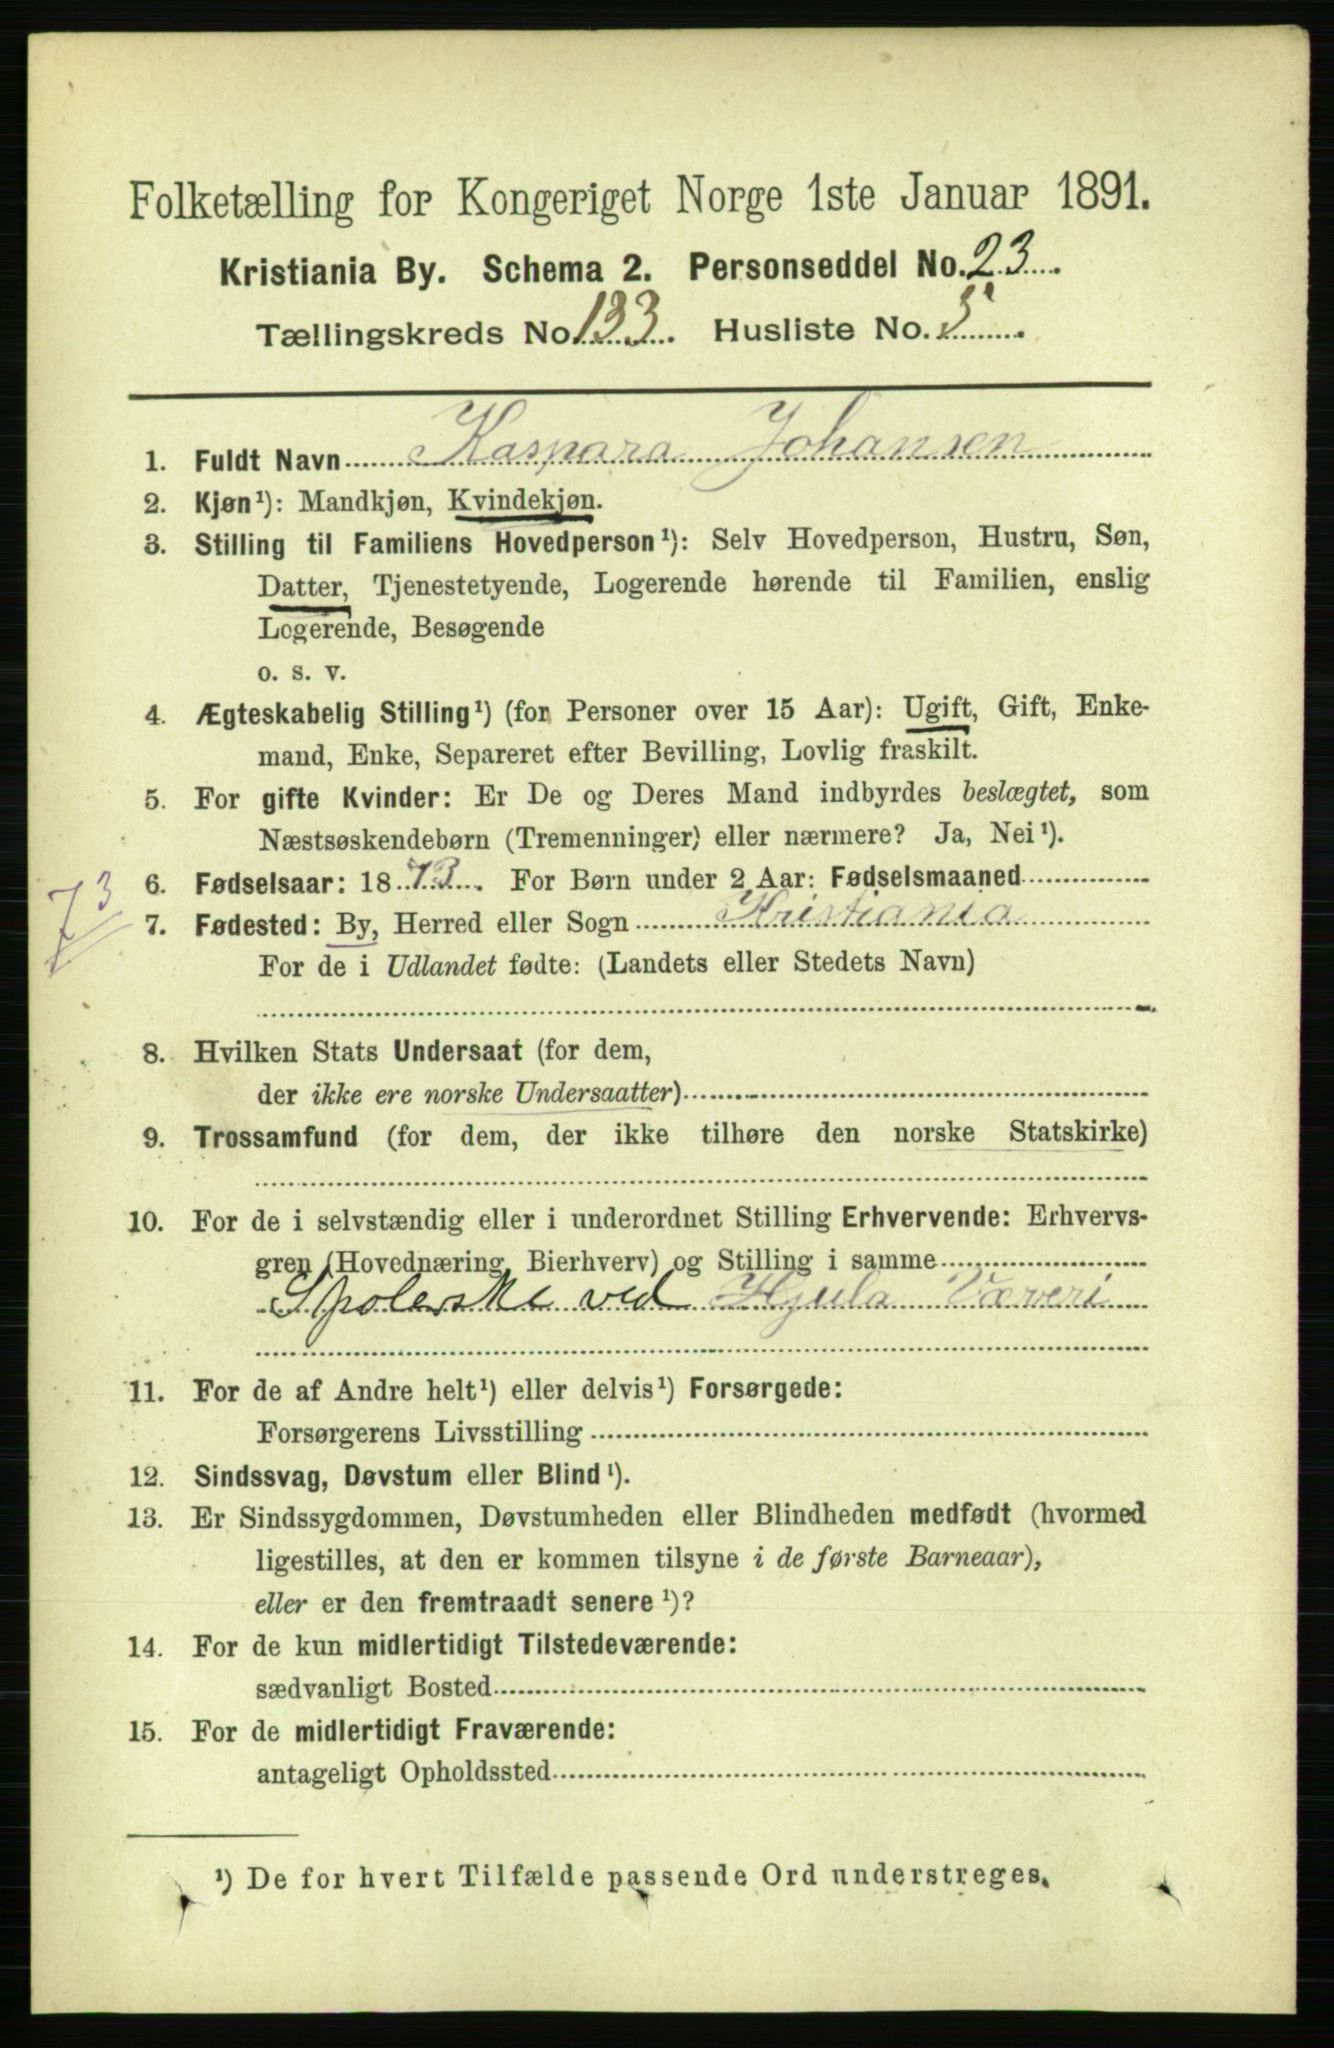 Folketælling for Kongeriget Norge 1ste Januar 1891.
Kristiania By. Schema 2. Personseddel No. 23
Tællingskreds No. 133. Husliste No. 5
1. Fuldt Navn Kaspara Johansen
2. Kjøn¹): Mandkjøn, Kvindekjøn.
3. Stilling til Familiens Hovedperson¹): Selv Hovedperson, Hustru, Søn,
Datter, Tjenestetyende, Logerende hørende til Familien, enslig
Logerende, Besøgende
o. s. v.
4. Ægteskabelig Stilling¹) (for Personer over 15 Aar): Ugift, Gift, Enke-
mand, Enke, Separeret efter Bevilling, Lovlig fraskilt.
5. For gifte Kvinder: Er De og Deres Mand indbyrdes beslægtet, som
Næstsøskendebørn (Tremenninger) eller nærmere? Ja, Nei¹).
6. Fødselsaar: 1873. For Børn under 2 Aar: Fødselsmaaned
73
7. Fødested: By, Herred eller Sogn Kristiania
For de i Udlandet fødte: (Landets eller Stedets Navn)
8. Hvilken Stats Undersaat (for dem,
der ikke ere norske Undersaatter)
9. Trossamfund (for dem, der ikke tilhøre den norske Statskirke)
10. For de i selvstændig eller i underordnet Stilling Erhvervende: Erhvervs-
gren (Hovednæring, Bierhverv) og Stilling i samme
Spolerske ved Hjula Væveri
11. For de af Andre helt¹) eller delvis¹) Forsørgede:
Forsørgerens Livsstilling
12. Sindssvag, Døvstum eller Blind¹).
13. Er Sindssygdommen, Døvstumheden eller Blindheden medfødt (hvormed
ligestilles, at den er kommen tilsyne i de første Barneaar),
eller er den fremtraadt senere¹)?
14. For de kun midlertidigt Tilstedeværende:
sædvanligt Bosted
15. For de midlertidigt Fraværende:
antageligt Opholdssted
¹) De for hvert Tilfælde passende Ord understreges.